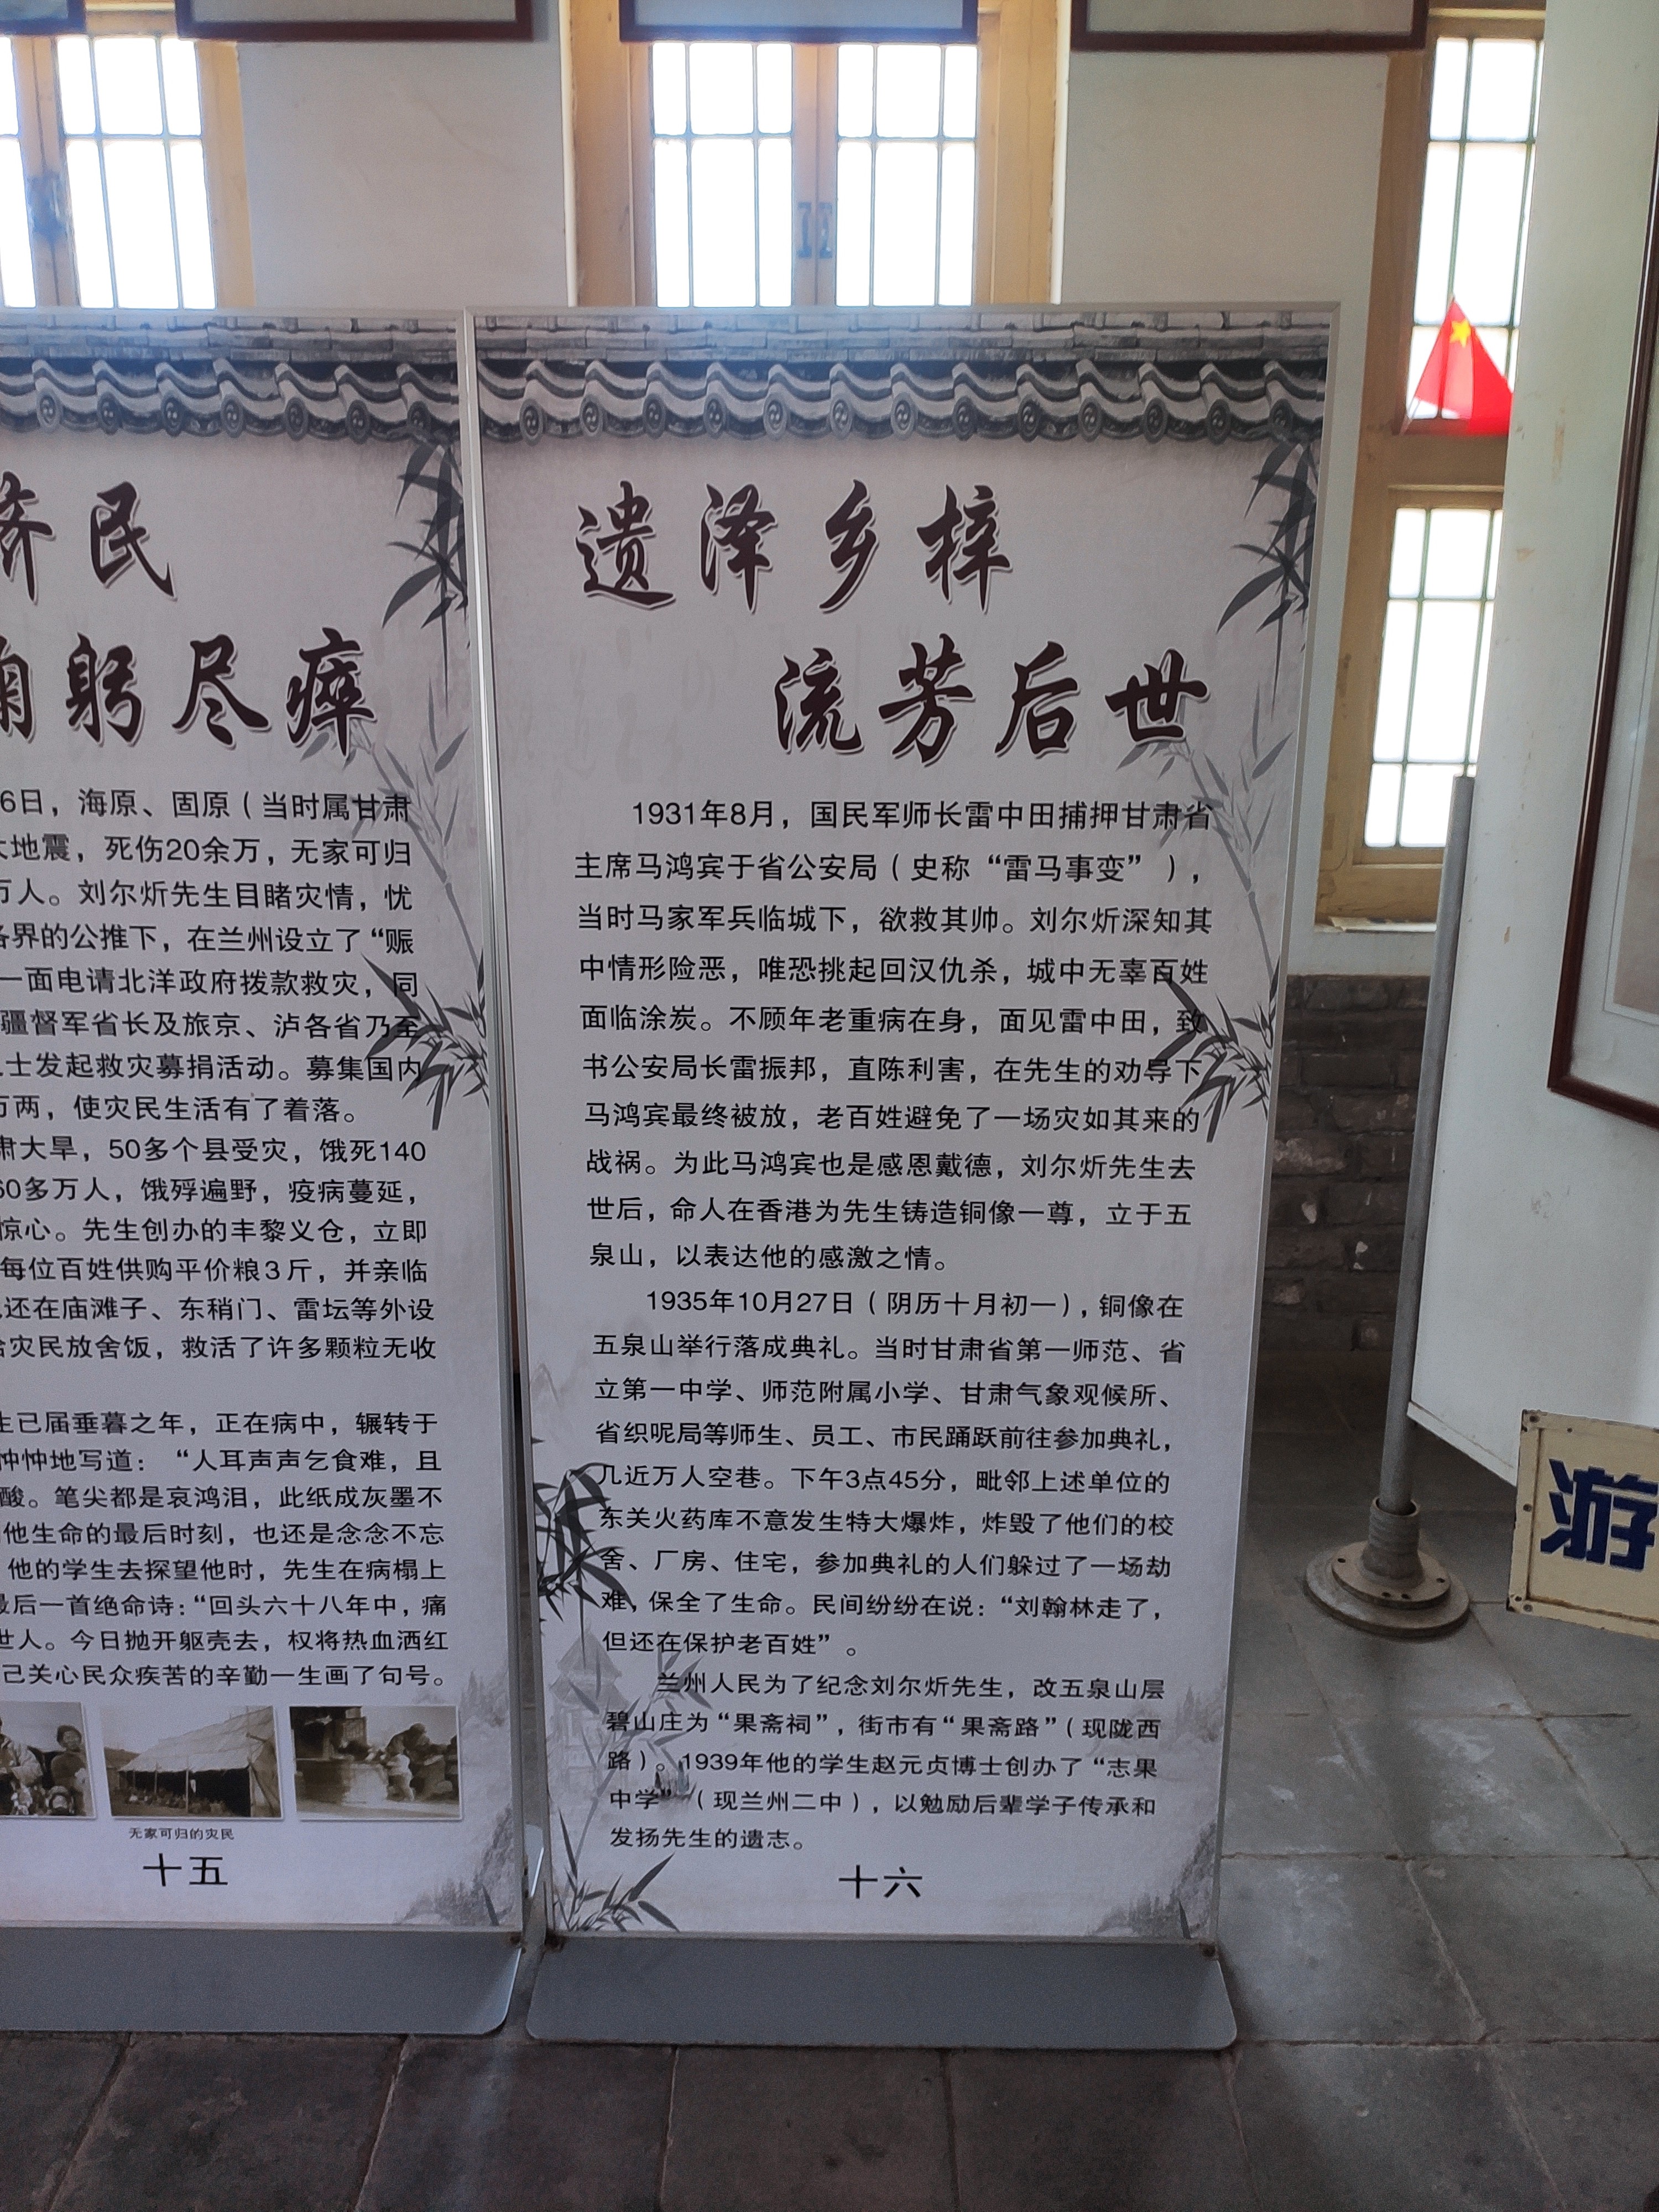 济民
鞠躬尽瘁
6日，海原、固原（当时属甘肃
大地震，死伤20余万，无家可归
万人。刘尔炘先生目睹灾情，忧
各界的公推下，在兰州设立了“赈
一面电请北洋政府拨款救灾，同
疆督军省长及旅京、泸各省乃至
士发起救灾募捐活动。募集国内
万两，使灾民生活有了着落。
肃大旱，50多个县受灾，饿死140
60多万人，饿殍遍野，疫病蔓延，
惊心。先生创办的丰黎义仓，立即
每位百姓供购平价粮3斤，并亲临
还在庙滩子、东稍门、雷坛等外设
给灾民放舍饭，救活了许多颗粒无收
生已届垂暮之年，正在病中，辗转于
忡忡地写道：“人耳声声乞食难，且
酸。笔尖都是哀鸿泪，此纸成灰墨不
他生命的最后时刻，也还是念念不忘
他的学生去探望他时，先生在病榻上
最后一首绝命诗：“回头六十八年中，痛
世人。今日抛开躯壳去，权将热血洒红
己关心民众疾苦的辛勤一生画了句号。
无家可归的灾民
十五
遗泽乡梓
流芳后世
1931年8月，国民军师长雷中田捕押甘肃省
主席马鸿宾于省公安局（史称“雷马事变”），
当时马家军兵临城下，欲救其帅。刘尔炘深知其
中情形险恶，唯恐挑起回汉仇杀，城中无辜百姓
面临涂炭。不顾年老重病在身，面见雷中田，致
书公安局长雷振邦，直陈利害，在先生的劝导下
马鸿宾最终被放，老百姓避免了一场灾如其来的
战祸。为此马鸿宾也是感恩戴德，刘尔炘先生去
世后，命人在香港为先生铸造铜像一尊，立于五
泉山，以表达他的感激之情。
1935年10月27日（阴历十月初一），铜像在
五泉山举行落成典礼。当时甘肃省第一师范、省
立第一中学、师范附属小学、甘肃气象观候所、
省织呢局等师生、员工、市民踊跃前往参加典礼，
几近万人空巷。下午3点45分，毗邻上述单位的
东关火药库不意发生特大爆炸，炸毁了他们的校
舍、厂房、住宅，参加典礼的人们躲过了一场劫
难，保全了生命。民间纷纷在说：“刘翰林走了，
但还在保护老百姓”。
兰州人民为了纪念刘尔炘先生，改五泉山层
碧山庄为“果斋祠”，街市有“果斋路”（现陇西
路）。1939年他的学生赵元贞博士创办了“志果
中学”（现兰州二中），以勉励后辈学子传承和
发扬先生的遗志。
十六
游